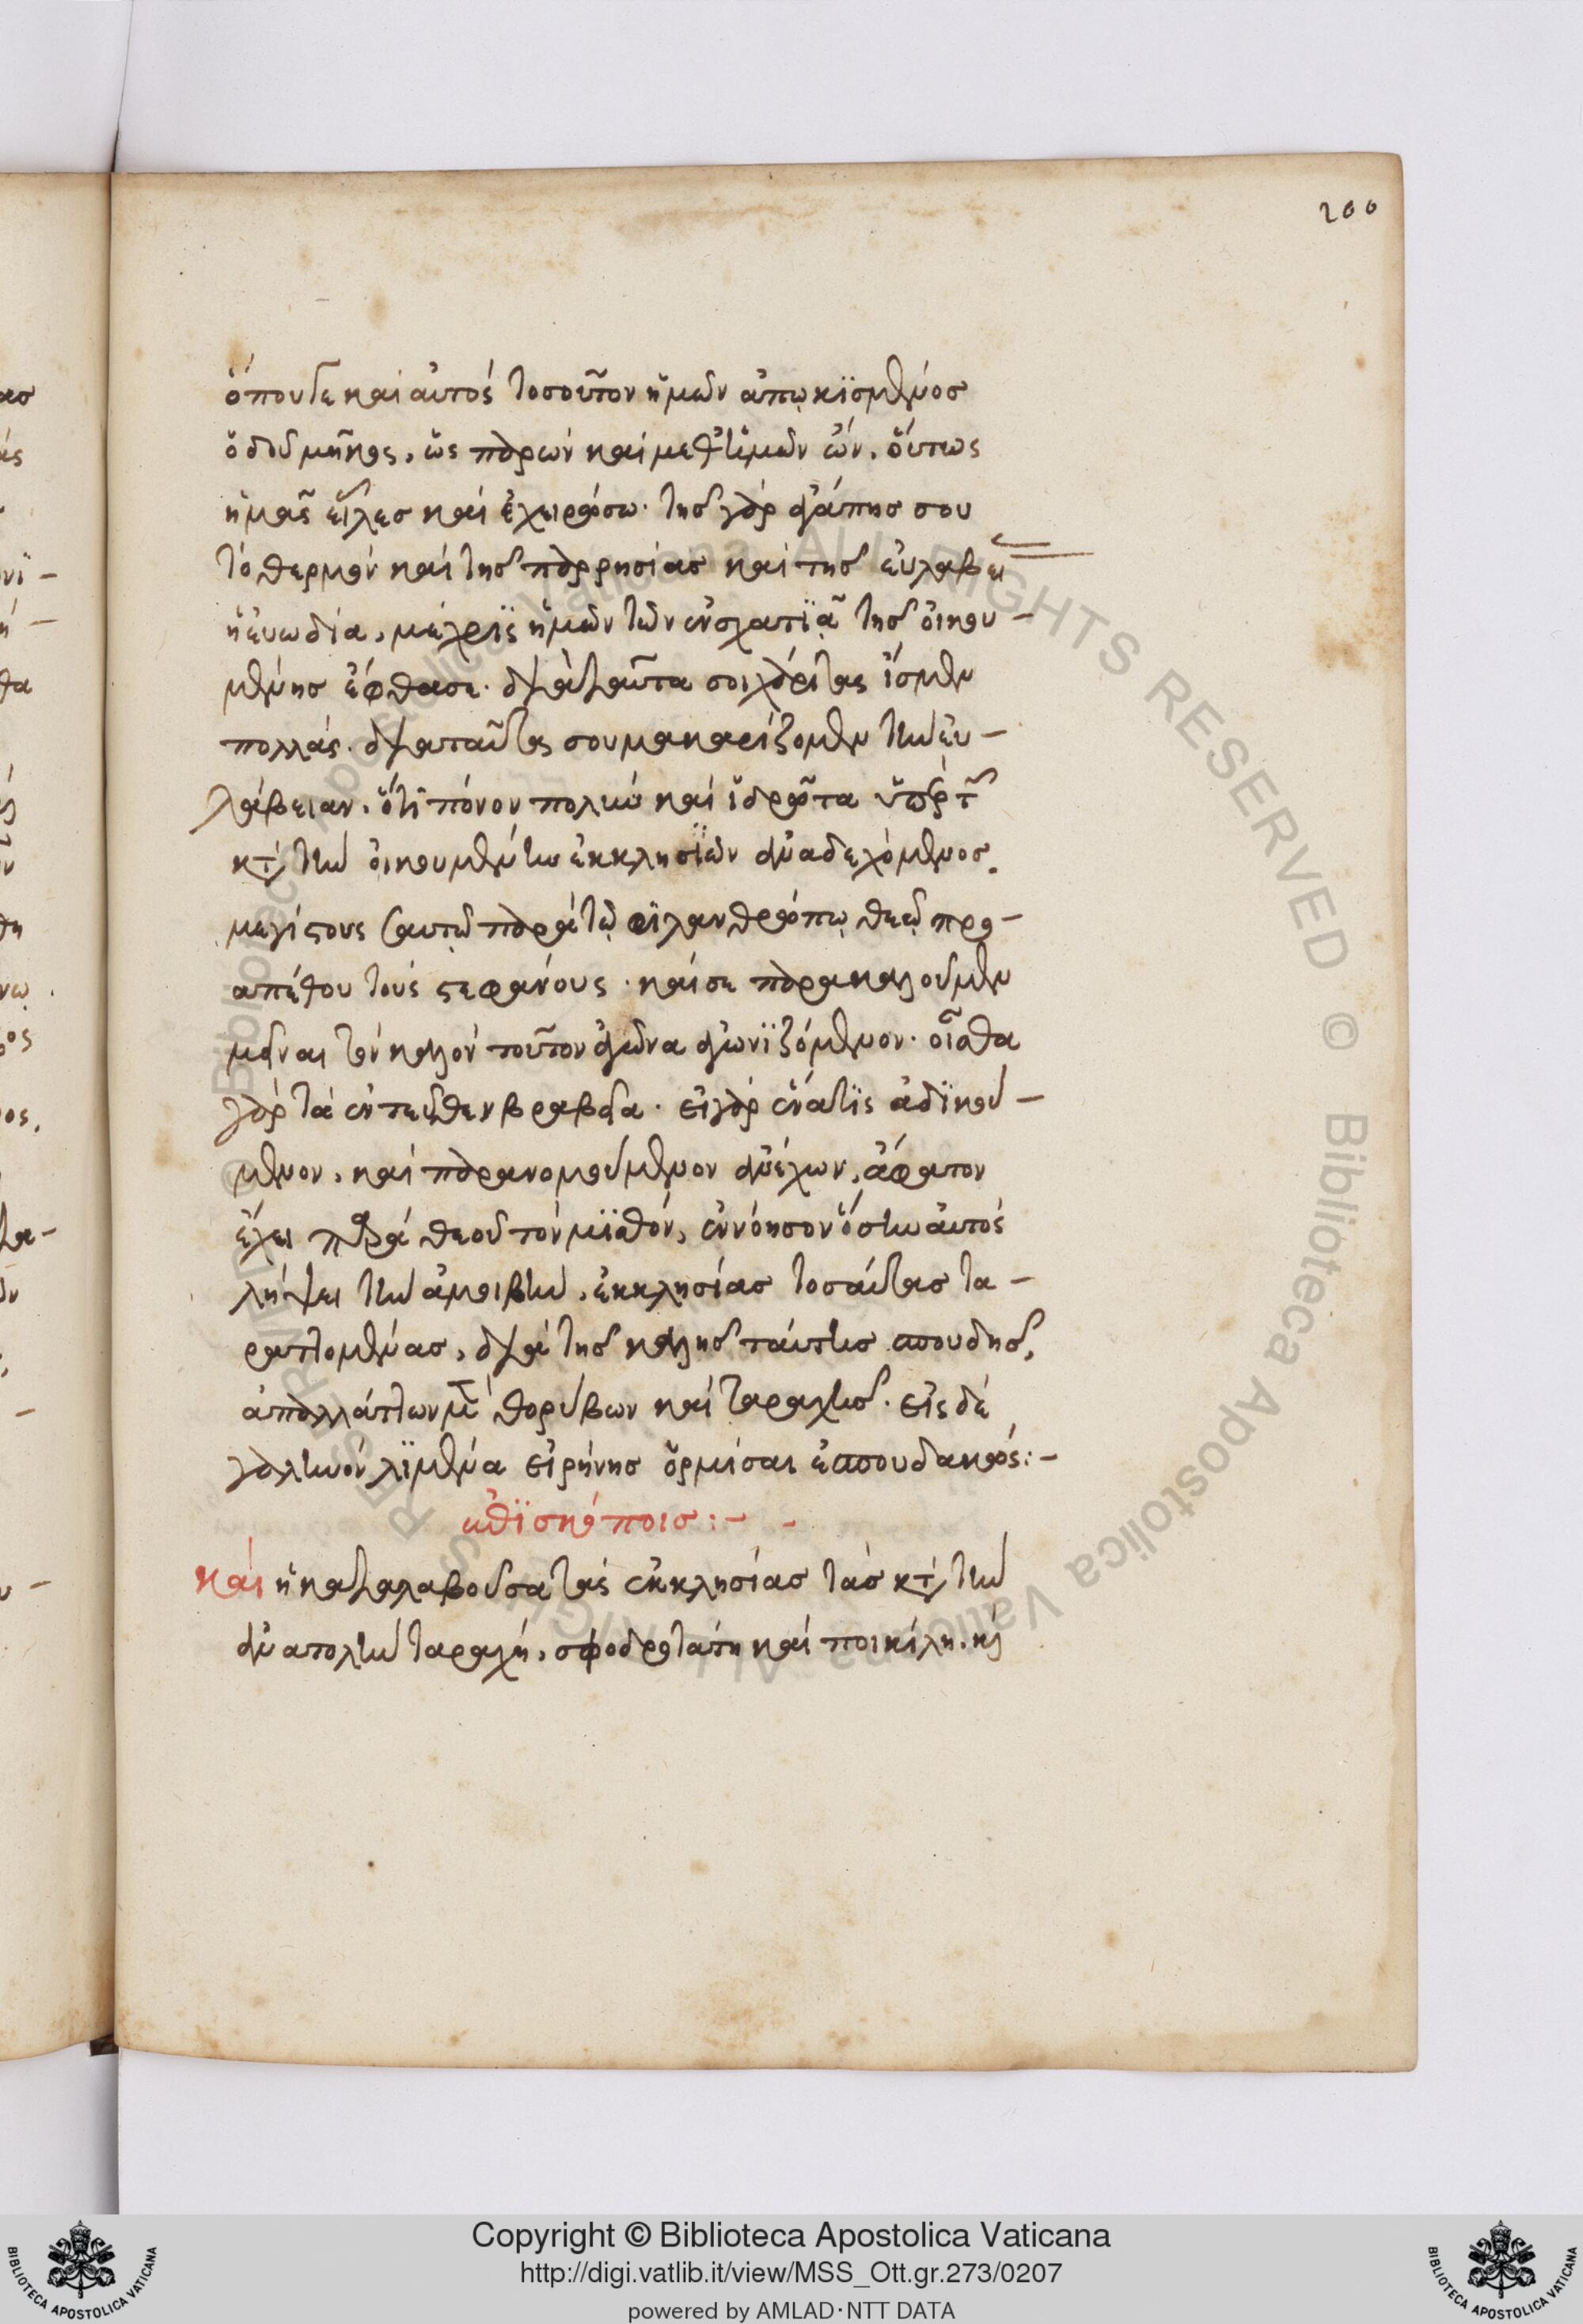 200
ὁπουδε καὶ αὐτὸς τοσοῦτον ἡμῶν ἀπῳκισμένος
ὁδοῦ μῆκος, ὡς παρὼν καὶ μεθ' ἡμῶν ὢν, οὕτως
ἡμᾶς εἷλες καὶ ἐχειρώσω. τῆς γὰρ ἀγάπης σου
τὸ θερμὸν καὶ τῆς παρρησίας καὶ τῆς εὐλαβεί
ἡ εὐωδία, μέχρις ἡμῶν τῶν ἐν ἐσχατιᾷ τῆς οἰκου-
μένης ἔφθασε. διὰ ταῦτα σοι χάριτας ἴσμεν
πολλάς. διὰ ταῦτα σου μακαρίζομεν τὴν εὐ-
λάβειαν, ὅτι πόνον πολὺν καὶ ἱδρῶτα ὑπὲρ τῶν
κατὰ τὴν οἰκουμένην ἐκκλησιῶν ἀναδεχόμενος,
μεγίστους ἑαυτῷ παρὰ τῷ φιλανθρώπῳ θεῷ προ-
απέθου τοὺς στεφάνους. καί σε παρακαλοῦμεν
μεῖναι τὸν καλὸν τοῦτον ἀγῶνα ἀγωνιζόμενον. οἶσθα
γὰρ τὰ ἐντεῦθεν βραβεῖα. εἰ γὰρ ἕνα τις ἀδικού-
μενον, καὶ παρανομούμενον ἀνέχων, ἄφατον
ἔχει παρὰ θεοῦ τὸν μισθόν, ἐννόησον ὅσην αὐτὸς
λήψει τὴν ἀμοιβὴν, ἐκκλησίας τοσαύτας τα-
ραττομένας, διὰ τῆς καλῆς ταύτης σπουδῆς,
ἀπαλλάττων μὲν θορύβων καὶ ταραχῆς. εἰς δὲ
γαληνὸν λιμένα εἰρήνης ὁρμίσαι ἐσπουδακώς:-
ἐπισκόποις:- -
Καὶ ἡ καταλαβοῦσα τὰς ἐκκλησίας τὰς κατὰ τὴν
ἀνατολὴν ταραχή, σφοδροτάτη καὶ ποικίλη. καὶ
Copyright © Biblioteca Apostolica Vaticana
http://digi.vatlib.it/view/MSS_Ott.gr.273/0207
powered by AMLAD·NTT DATA